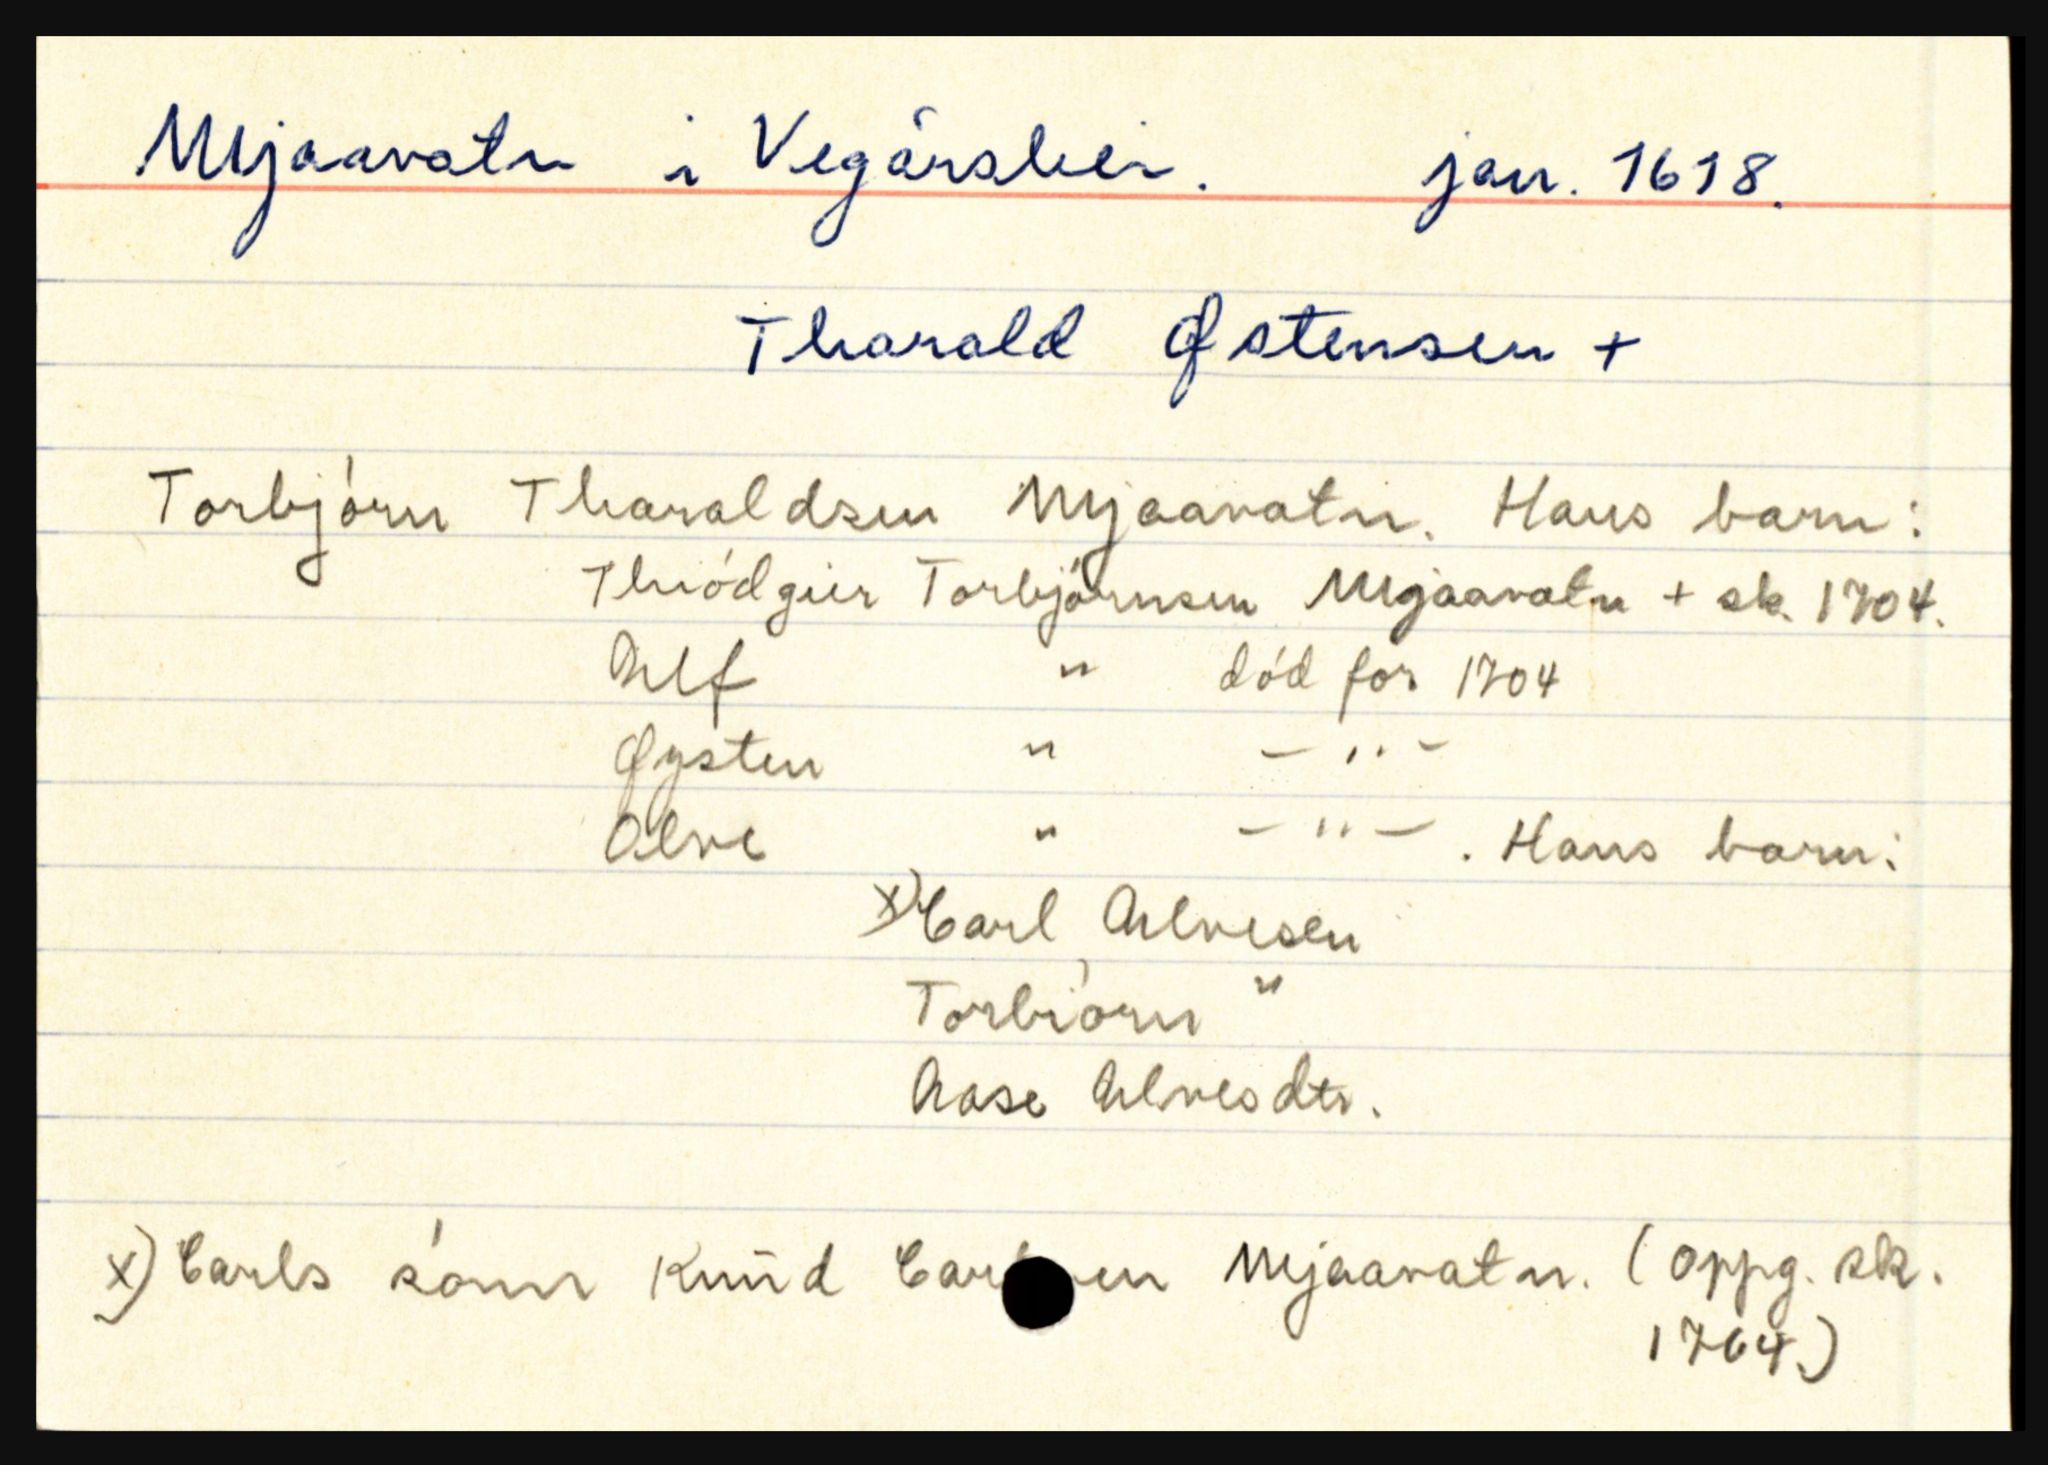 Mjaavatn i Vegårshei. jan. 1618.
Tharald Østensen +
Torbjórn Tharaldsen Mjaavatn. Hans barn:
Thiódgier Torbjórnsen Mjaavatn + sk. 1704.
Ulf " dód for 1704
Øysten " - " -
Alve " - " - . Hans barn:
x) Carl Alvesen
Torbiórn "
Aase Alvesdtr.
x) Carls sónn Knud Mjaavatn. (oppg. sk.
1764.)